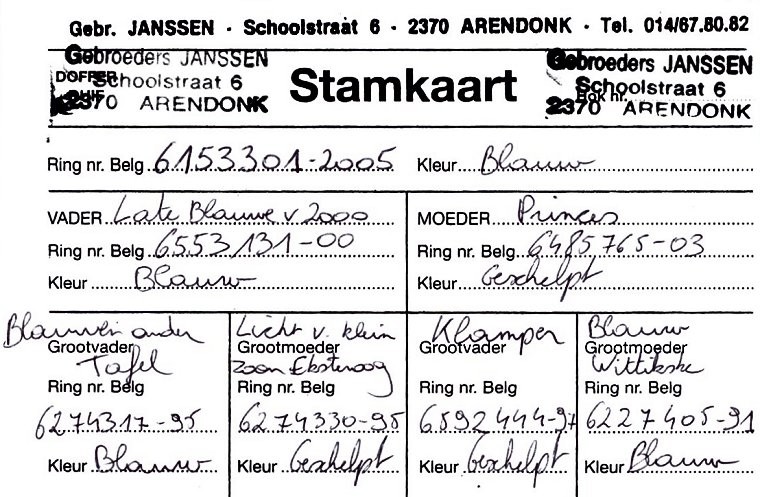 Gebr. JANSSEN · Schoolstraat 6 · 2370 ARENDONK · Tel. 014/67.80.82
Gebroeders JANSSEN
Schoolstraat 6
2370 ARENDONK
DOFFER
DUIF
Stamkaart
Gebroeders JANSSEN
Schoolstraat 6
2370 ARENDONK
Hok nr.
Ring nr. Belg 6153301-2005 Kleur Blauw
VADER Late Blauwe v 2000
Ring nr. Belg 6553131-00
Kleur Blauw
MOEDER Princes
Ring nr. Belg 6485765-03
Kleur Geschelpt
Blauwen onder
Grootvader
Tafel
Ring nr. Belg
6274317-95
Kleur Blauw
Licht v. klein
Grootmoeder
zoon Eksteroog
Ring nr. Belg
6274330-95
Kleur Geschelpt
Klamper
Grootvader
Ring nr. Belg
6592444-97
Kleur Geschelpt
Blauw
Grootmoeder
Wittikske
Ring nr. Belg
6227405-91
Kleur Blauw